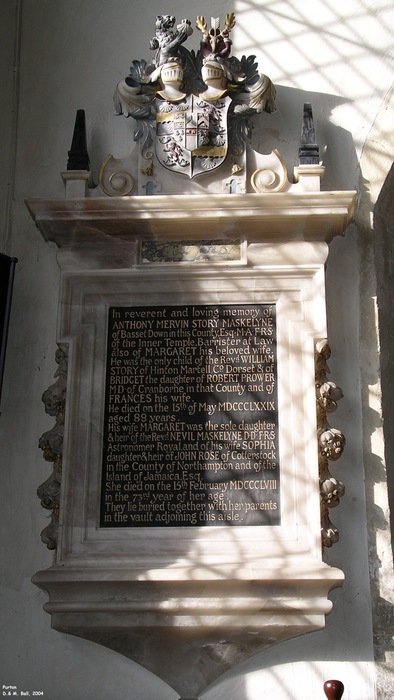 In reverent and loving memory of
ANTHONY MERVIN STORY MASKELYNE
of Basset Down in this County, Esq. M.A. F.R.S
of the Inner Temple, Barrister at Law
also of MARGARET his beloved wife.
He was the only child of the Revd WILLIAM
STORY of Hinton Martell Co. Dorset & of
BRIDGET the daughter of ROBERT PROWER
M.D of Cranborne in that County and of
FRANCES his wife.
He died on the 15th of May MDCCCLXXIX
aged 88 years.
His wife MARGARET was the sole daughter
& heir of the Revd NEVIL MASKELYNE DD FRS
Astronomer Royal and of his wife SOPHIA
daughter & heir of JOHN ROSE of Cotterstock
in the County of Northampton and of the
Island of Jamaica, Esqr.
She died on the 15th February MDCCCLVIII
in the 73rd year of her age.
They lie buried together with her parents
in the vault adjoining this aisle.
Purton
D.& M. Ball, 2004